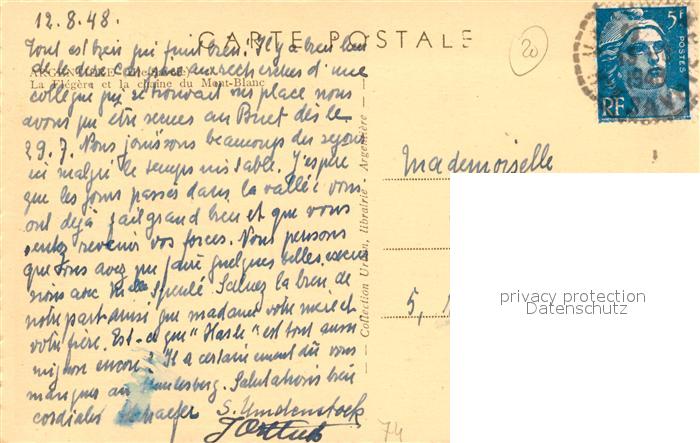 12.8.48.
CARTE POSTALE
20
5F
POSTES
RF
Tout est bien qui finit bien. Il y a bien
d'une
La Flégère et la chaîne du Mont-Blanc
collègue qui se trouvait sur place nous
avons pu être au Buet dès le
29.7. Nous jouissons beaucoup du séjour
ici malgré le temps instable. J'espère
que les jours passés dans la vallée vous
ont déjà fait grand bien et que vous
sentez revenir vos forces. Nous pensons
que vous avez pu faire quelques belles
avec Mlle Saluez la bien de
notre part ainsi que madame votre mère et
votre frère. Est-ce que est tout aussi
mignon encore? Il a certainement dû vous
manquer au Salutations bien
cordiales S. Umdenstock
Collection librairie - Argentière
Mademoiselle
5,
74
privacy protection
Datenschutz